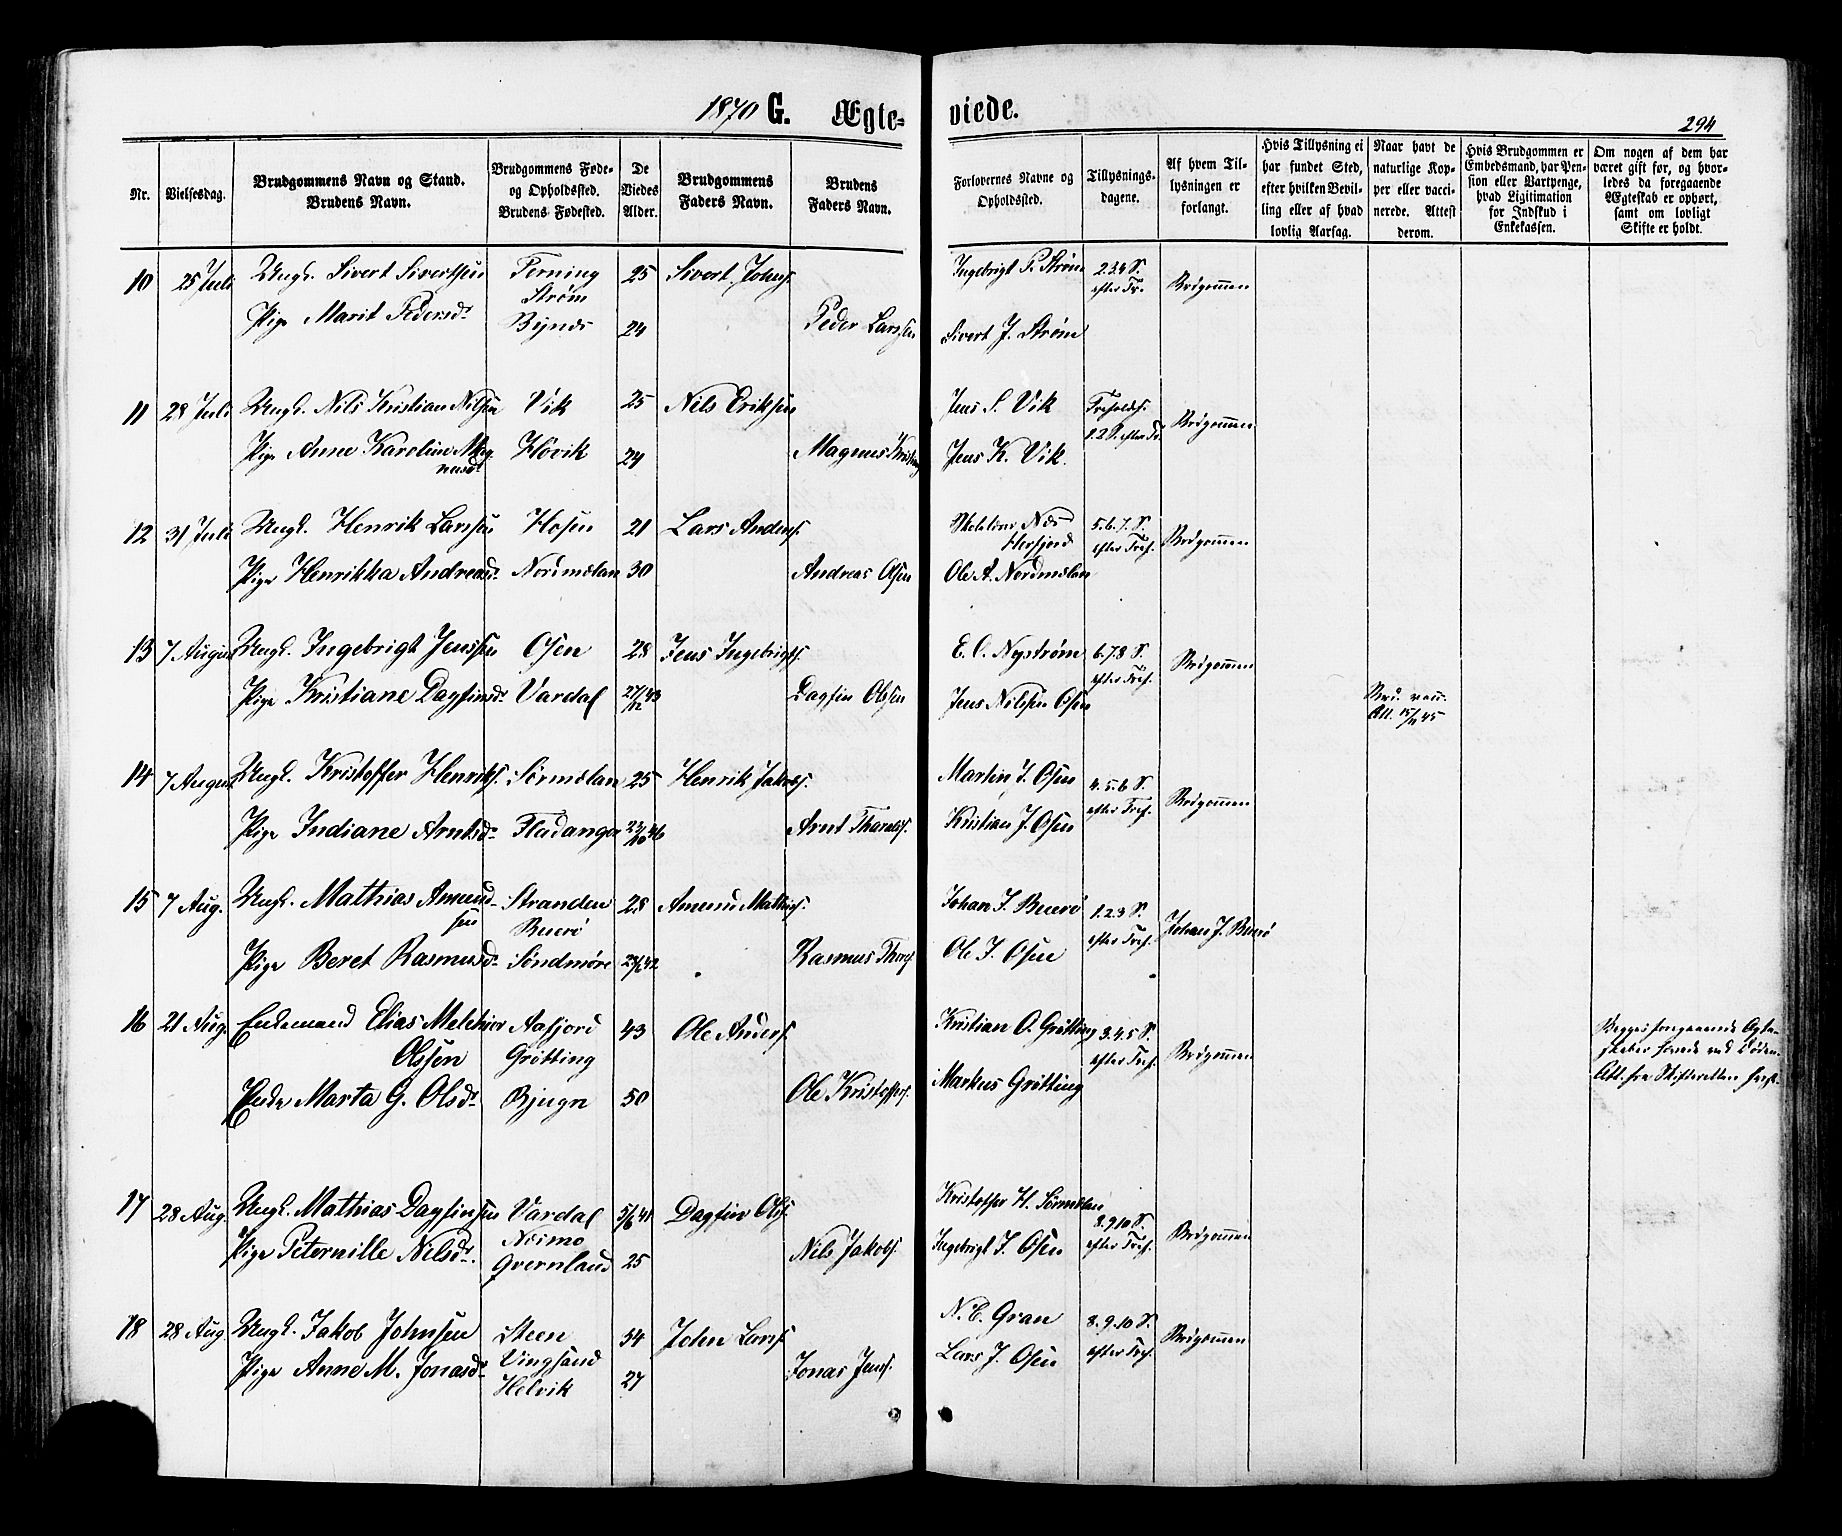 1870 G. Ægte-
viede.
294
Nr.
Vielsesdag.
Brudgommens Navn og Stand.
Brudens Navn.
Brudgommens Føde-
og Opholdssted.
Brudens Fødested.
De
Viedes
Alder.
Brudgommens
Faders Navn.
Brudens
Faders Navn.
Forlovernes Navne og
Opholdssted.
Tillysnings-
dagene.
Af hvem Til-
lysningen er
forlangt.
Hvis Tillysning ei
har fundet Sted,
efter hvilken Bevil-
ling eller af hvad
lovlig Aarsag.
Naar havt de
naturlige Kop-
per eller vacci-
nerede. Attest
derom.
Hvis Brudgommen er
Embedsmand, har Pen-
sion eller Vartpenge,
hvad Ligitimation
for Indskud i
Enkekassen.
Om nogen af dem har
været gift før, og hvor-
ledes da foregaaende
Ægteskab er ophørt,
samt om lovligt
Skifte er holdt.
10 25 Juli Ungk. Sivert Sivertsen Terning 25 Sivert Johns. Ingebrigt P. Strøm 2.3.4 S. Brudgommen
Strøm efter Tr.
Pige Marit Pedersdr Bynes 24 Peder Larssen Sivert J. Strøm
11 28 Juli Ungk. Nils Kristian Nilsen Vik 25 Nils Eriksen Jens S. Vik Brudgommen
1.2 S. efter Tr.
Pige Anne Karoline Mag- Hovik 24 Magnus Jens K. Vik.
nusdr
12 31 Juli Ungk. Henrik Larssen Hosen 21 Lars Anders. Næs 5.6.7. S. Brudgommen
Herfjord efter Tref.
Pige Henrikka Andreasdr Nordmelan 30 Andreas Olsen Ole A. Nordmelan
13 7 August Ungk. Ingebrigt Jenssen Osen 28 Jens Ingebrigts. E. O. Nystrøm 6.7.8 S. Brudgommen
efter Tref.
Pige Kristiane Dagfinsdr Vardal 27/12 43 Dagfin Olssen Jens Nilsen Osen Bru. vacc.
Att. 15/11 45
14 7 August Ungk. Kristoffer Henriks. Sørmelan 25 Henrik Jakobs. Martin J. Osen 4.5.6 S. Brudgommen
efter Tref.
Pige Indiane Arntsdr Fladanger 46 Arnt Kristian J. Osen
15 7 Aug. Ungk. Mathias Amund- Stranden 28 Amund Mathias. Johan J. Buerø 1.2.3 S. Johan J. Buerø
sen Buerø efter Tref.
Pige Beret Rasmusdr Söndmöre 42 Rasmus Ole J. Osen
16 21 Aug. Enkemand Elias Melchior Aafjord 43 Ole Anders. Kristian O. Grötting 3.4.5 S. Brudgommen Begges foregaaende Ægte-
Olssen Grötting efter Tref. skaber hævede ved Döden.
Enke Marta G. Olsdr Bjugn 50 Ole Kristoffers. Markus Grötting Att. fra Skifteretten
17 28 Aug. Ungk. Mathias Dagfinsen Vardal 5/6 41 Dagfin Ols. Kristoffer H. Sørmelan 8.9.10 S. Brudgommen
Næsmo efter Tref.
Pige Peternille Nilsdr. Qvernland 25 Nils Jakobs. Ingebrigt J. Osen
18 28 Aug. Ungk. Jakob Johnsen Steen 54 John Lars. N. E. Gran 8.9.10 S. Brudgommen
Vingsand efter Tref.
Pige Anne M. Jonasdr Helvik 27 Jonas Jens. Lars J. Osen